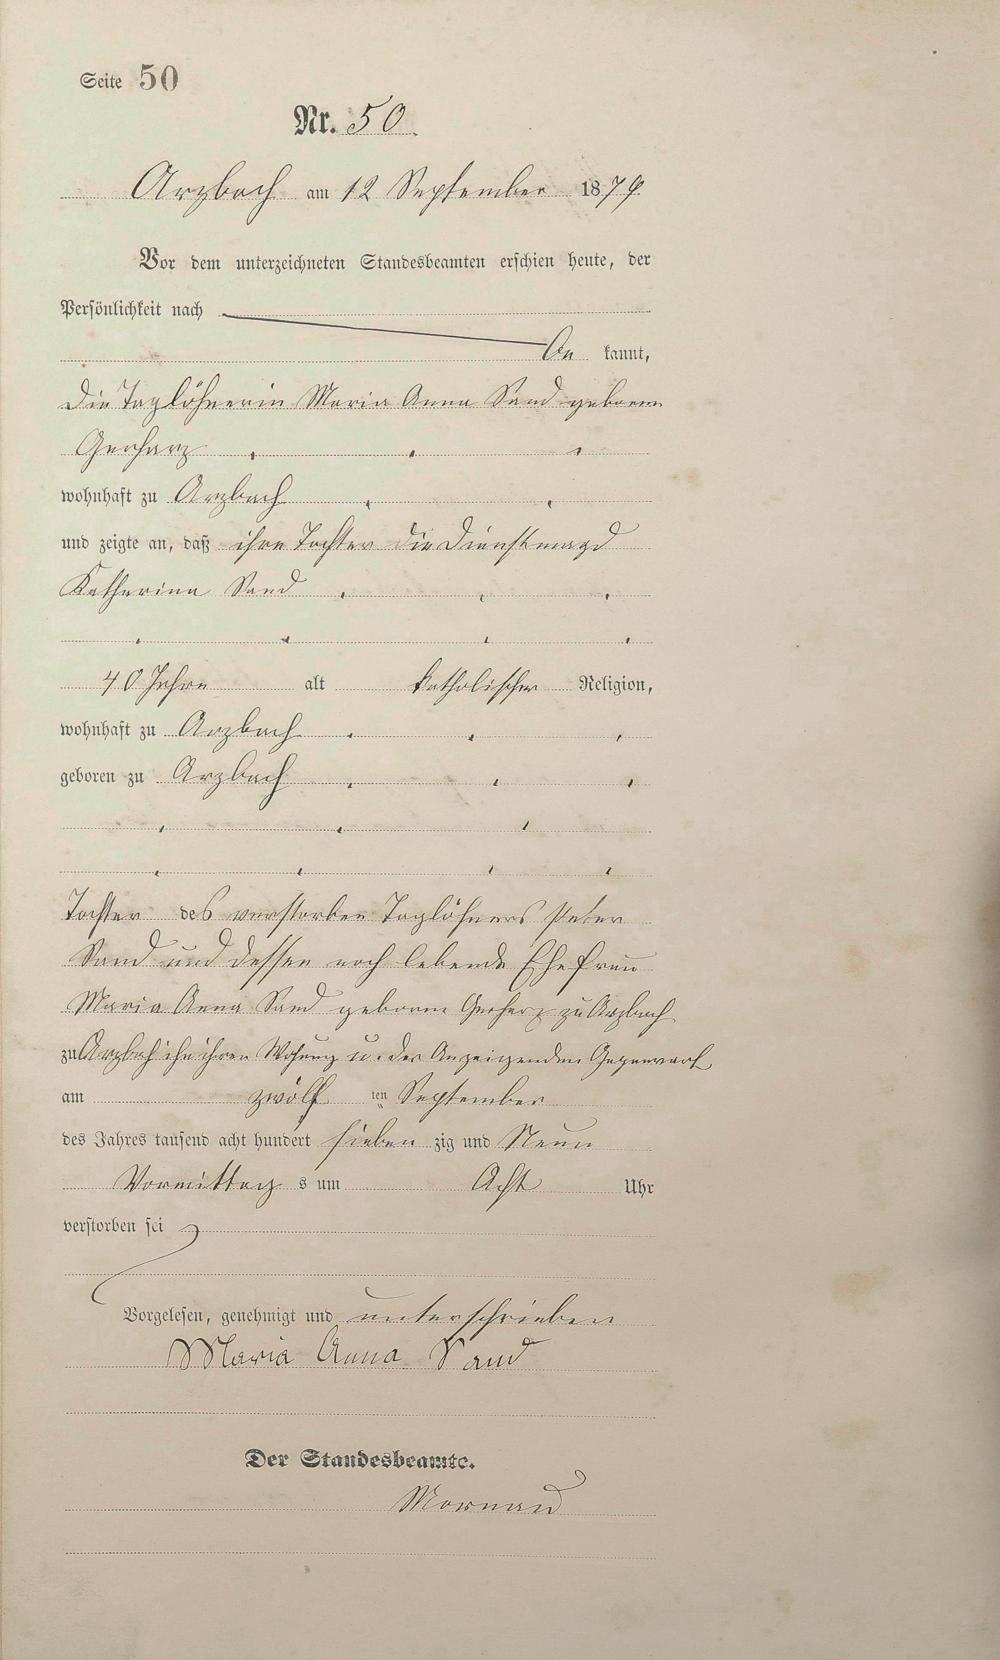 Seite 50
Nr. 50.
Arzbach am 12 September 1879
Vor dem unterzeichneten Standesbeamten erschien heute, der
Persönlichkeit nach
be kannt,
die Taglöhnerin Maria Anna Sand geborene
Gerharz
wohnhaft zu Arzbach
und zeigte an, daß ihre Tochter die Dienstmagd
Katharina Sand
40 Jahre alt katholischer Religion,
wohnhaft zu Arzbach
geboren zu Arzbach
Tochter des verstorben Taglöhners Peter
Sand und dessen noch lebende Ehefrau
Maria Anna Sand geborne Gerharz zu Arzbach
zu Arzbach in ihrer Wohnung u. der Anzeigenden Gegenwart
am zwölf ten September
des Jahres tausend acht hundert sieben zig und Neun
Vormittag s um Acht Uhr
verstorben sei
Vorgelesen, genehmigt und unterschrieben
Maria Anna Sand
Der Standesbeamte.